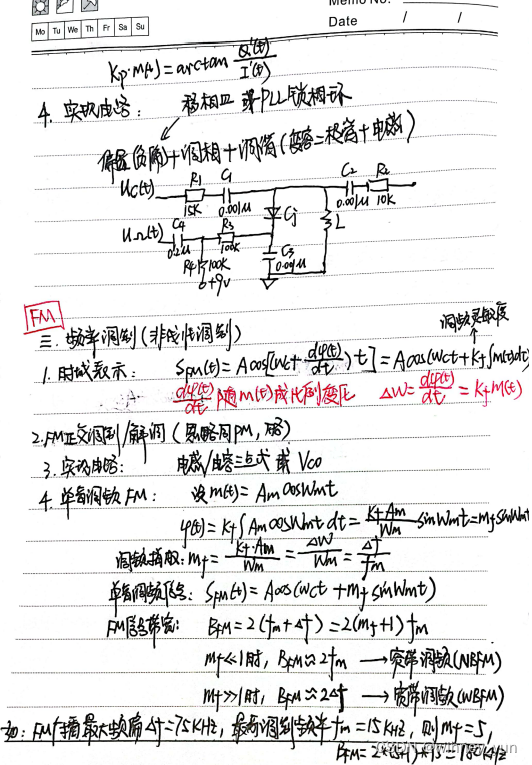 Memo No.
Mo Tu We Th Fr Sa Su
Date / /
Kp·m(t) = arctan Q'(t)/I'(t)
4. 实现电路: 移相 或 PLL锁相环
偏置(负偏)+调相+调谐(变容二极管+电感)
Uc(t) R1 15K C1 0.001μ C2 0.001μ R2 10K
Cj L
UΩ(t) C4 0.2μ R3 100K C3 0.001μ
R4 100K
+9V
FM
三. 频率调制(非线性调制)
调频灵敏度
1. 时域表示: S_FM(t) = A cos[Wc+ dφ(t)/dt) t] = A cos(Wct + Kf∫m(t)dt)
dφ(t)/dt 随m(t)成比例变化 ΔW = dφ(t)/dt = Kf m(t)
2. FM正交调制/解调 (思路同PM, 略)
3. 实现电路: 电感/电容三点式 或 Vco
4. 单音调频FM: 设 m(t) = Am cosWmt
φ(t) = Kf∫Am cosWmt dt = Kf Am/Wm sinWmt = mf sinWmt
调频指数: mf = Kf·Am/Wm = ΔW/Wm = Δf/fm
单音调频信号: S_FM(t) = A cos(Wct + mf sinWmt)
FM信号带宽: B_FM = 2(fm+Δf) = 2(mf+1) fm
mf≪1时, B_FM≈2fm → 窄带调频(NBFM)
mf≫1时, B_FM≈2Δf → 宽带调频(WBFM)
如: FM广播最大频偏Δf=75KHz, 最高调制频率fm=15KHz, 则mf=5,
B_FM = 2*(5+1)*15 = 180KHz